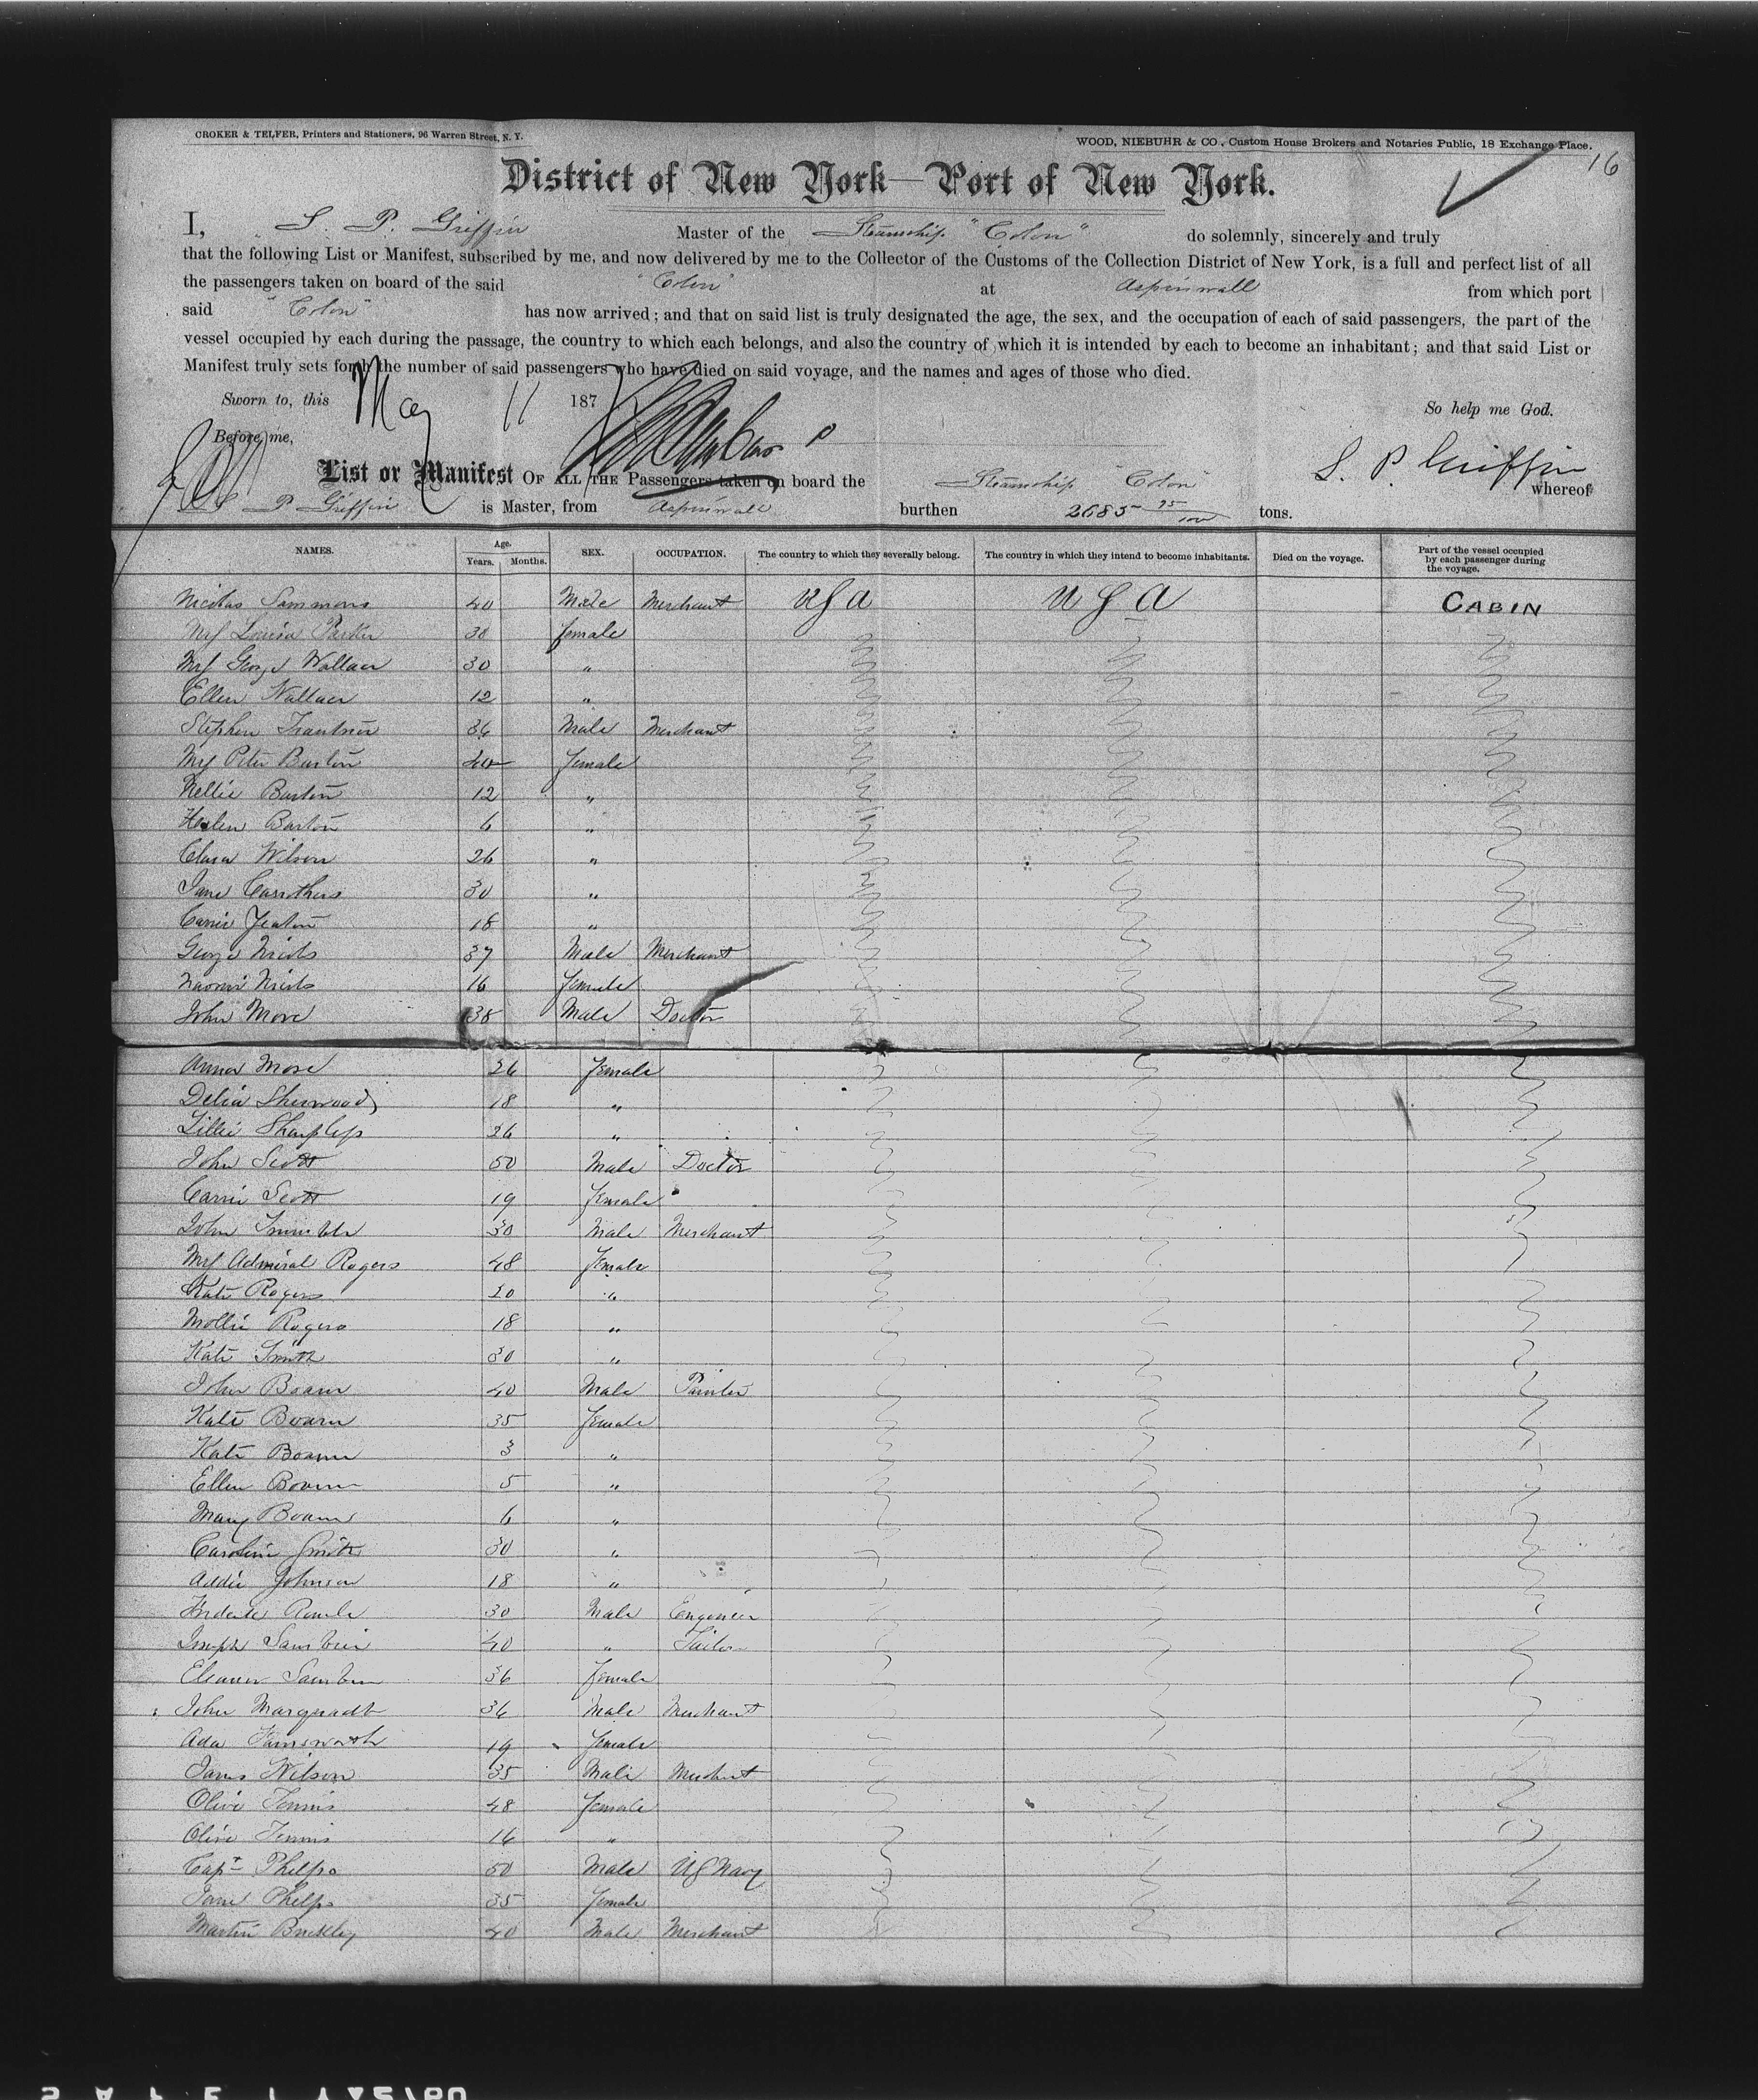 CROKER & TELFER, Printers and Stationers, 96 Warren Street, N. Y.
WOOD, NIEBUHR & CO., Custom House Brokers and Notaries Public, 18 Exchange Place.
16
District of New York—Port of New York.
I, S. P. Griffin Master of the Steamship "Colon" do solemnly, sincerely and truly
that the following List or Manifest, subscribed by me, and now delivered by me to the Collector of the Customs of the Collection District of New York, is a full and perfect list of all
the passengers taken on board of the said "Colon" at Aspinwall from which port
said "Colon" has now arrived; and that on said list is truly designated the age, the sex, and the occupation of each of said passengers, the part of the
vessel occupied by each during the passage, the country to which each belongs, and also the country of which it is intended by each to become an inhabitant; and that said List or
Manifest truly sets forth the number of said passengers who have died on said voyage, and the names and ages of those who died.
Sworn to, this May 11 187
So help me God.
Before me,
S. P. Griffin
List or Manifest OF ALL THE Passengers taken on board the Steamship "Colon" whereof
S P Griffin is Master, from Aspinwall burthen 2685 95/100 tons.
NAMES. Age. Years. Months. SEX. OCCUPATION. The country to which they severally belong. The country in which they intend to become inhabitants. Died on the voyage. Part of the vessel occupied by each passenger during the voyage.
Nicolas Simmons 40 Male Merchant U S A U S A CABIN
Mrs Louisa Parker 30 female
Mrs George Wallace 30 "
Ellen Wallace 12 "
Stephen 36 Male Merchant
Mrs Peter Barton 40 female
Nellie Barton 12 "
Helen Barton 6 "
Clara Wilson 26 "
Jane Carothers 30 "
Carrie Yeaton 18 "
George 37 Male Merchant
Naomi 16 female
John More 38 Male Doctor
Anna More 26 female
Delia Sherwood 18 "
Lillie Sharpless 26 "
John Scott 50 Male Doctor
Carrie Scott 19 female
John Trimble 30 Male Merchant
Mrs Admiral Rogers 48 female
Kate Rogers 20 "
Mollie Rogers 18 "
Kate Smith 30 "
John 40 Male Painter
Kate 35 female
Kate 3 "
Ellen 5 "
Mary 6 "
Caroline Smith 30 "
Addie Johnson 18 "
30 Male Engineer
Joseph 40 " Tailor
Eleanor 36 female
John Marquardt 36 Male Merchant
Ada Farnsworth 19 female
James Wilson 35 Male Merchant
Olive Tennis 48 female
Olive Tennis 16 "
Capt Phelps 50 Male US Navy
Jane Phelps 35 female
Martin Brickley 40 Male Merchant